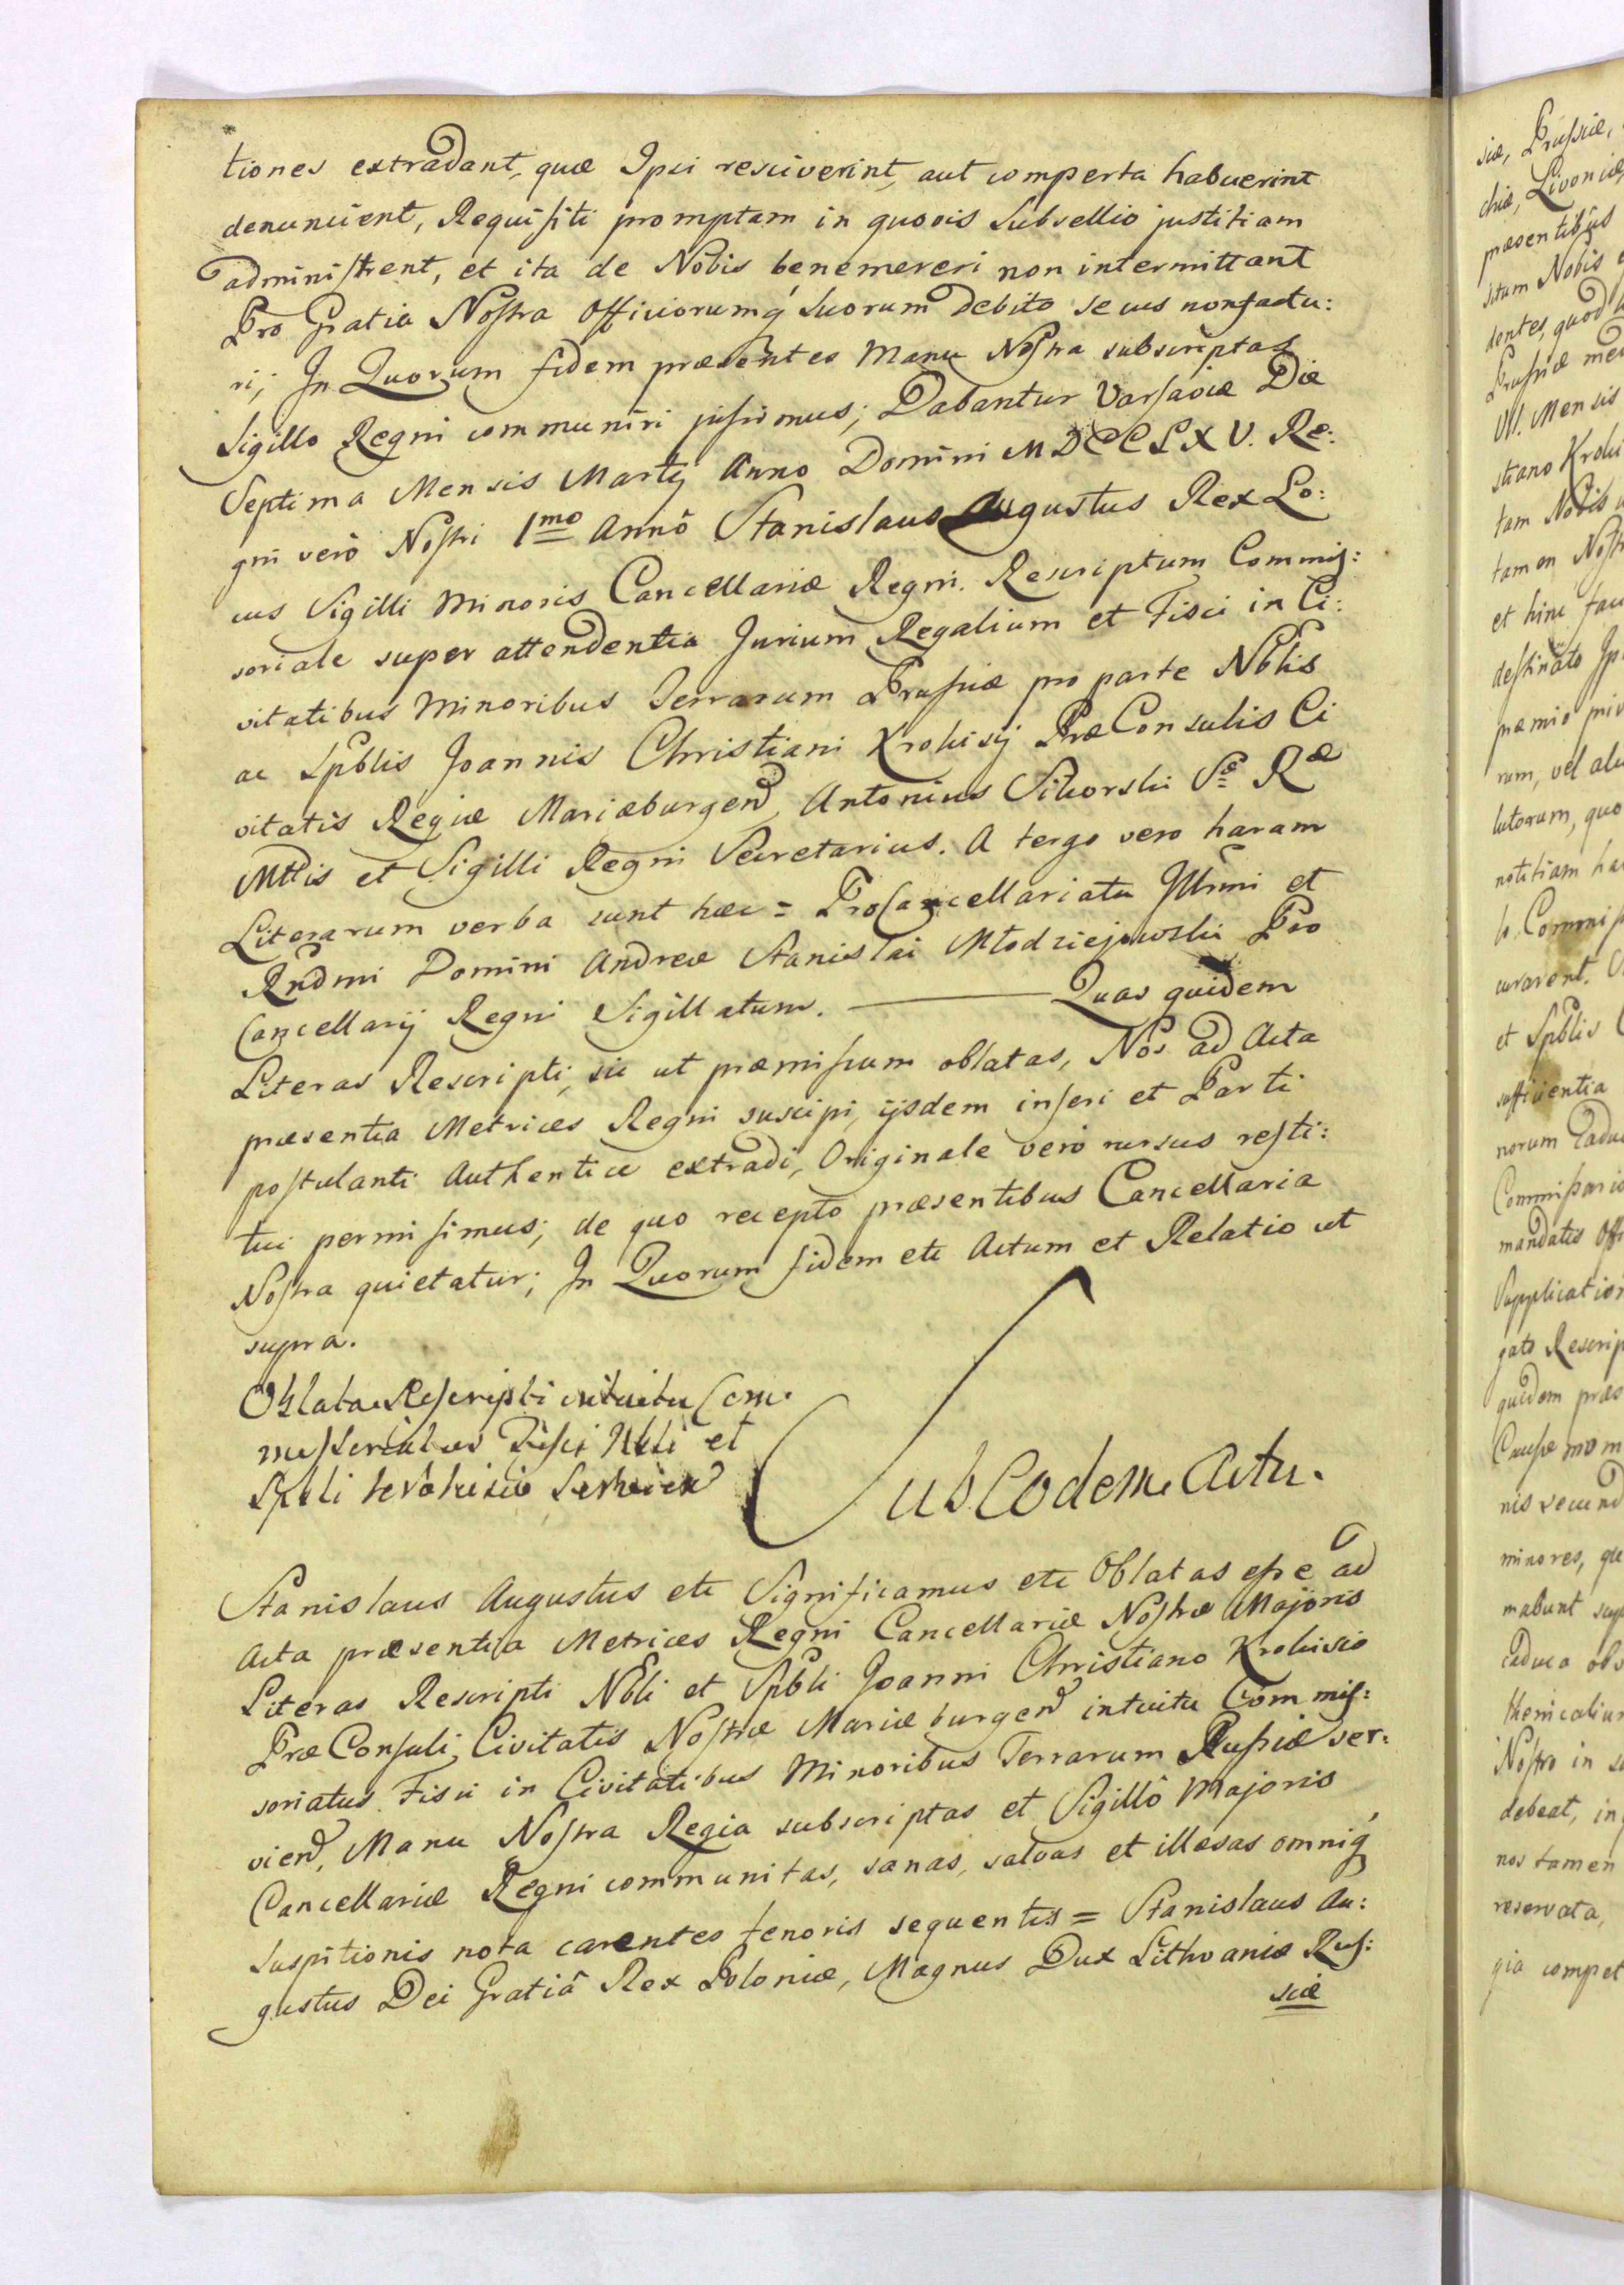 tiones extradant, quæ Ipsi resciverint, aut comperta habuerint
denuncient, Requisiti promptam in quovis Subsellio justitiam
administrent, et ita de Nobis benemereri non intermittant
Pro Gratia Nostra Officiorumq́ Suorum debito secus non factu:
ri; In Quorum fidem præsentes Manu Nostra subscriptas
Sigillo Regni communiri jussimus; Dabantur Varsaviæ Die
Septima Mensis Martij Anno Domini MDCCLXV. Re:
gni verò Nostri 1mo Annô Stanislaus Augustus Rex Lo:
cus Sigilli Minoris Cancellariæ Regni. Rescriptum Commis:
soriale super attendentia Jurium Regalium et Fisci in Ci:
vitatibus Minoribus Terrarum Prussiæ pro parte Nblis
ac Spblis Joannis Christiani Krokisij PræConsulis Ci
vitatis Regiæ Mariæburgen, Antonius Sikorski Sæ Ræ
Mttis et Sigilli Regni Secretarius. A tergo vero harum
Literarum verba sunt hæc = ProCancellariatu Illmi et
Rndmi Domini Andreæ Stanislai Młodziejowski Pro
Cancellarij Regni Sigillatum. — Quas quidem
Literas Rescripti, sic ut præmissum oblatas, Nos ad Acta
præsentia Metrices Regni suscipi, ijsdem inseri et Parti
postulanti Authentice extradi, Originale verò rursus resti:
tui permisimus; de quo recepto præsentibus Cancellaria
Nostra quietatur; In Quorum fidem etc Actum et Relatio ut
supra.
Oblata Rescripti intuitu Com
missoriatus Fisci Nbli et
Spbli Krokisio Servien
Sub Eodem Actu.
Stanislaus Augustus etc Significamus etc Oblatas esse ad
Acta præsentia Metrices Regni Cancellariæ Nostræ Majoris
Literas Rescripti Nbli et Spbli Joanni Christiano Krokisio
PræConsuli Civitatis Nostræ Mariæburgen intuitu Commis:
soriatus Fisci in Civitatibus Minoribus Terrarum Prussiæ ser:
vien, Manu Nostra Regia subscriptas et Sigillô Majoris
Cancellariæ Regni communitas, sanas, salvas et illæsas omniq́
Suspitionis nota carentes tenoris sequentis = Stanislaus Au:
gustus Dei Gratiâ Rex Poloniæ, Magnus Dux Lithvaniæ Rus:
siæ
siæ, Prussiæ,
chiæ, Livoniæ
præsentibus
situm Nobis
dentes, quod
Prussiæ med
VI. Mensis
stiano Kroki
tam Nobis
tamen Nostr
et hinc fau
destinato Ip
præmio priv
rum, vel ali
lutorum, quo
notitiam ha
Commiss
curarent.
et Spblis
sufficientia
norum Caduc
Commissario
mandatis Off
Supplication
gato Rescrip
quidem præs
Causæ mom
nis secund
minores, quæ
mabunt sup
caduca obs
Nostro in
debeat, in
nos tamen
reservata,
gia compet